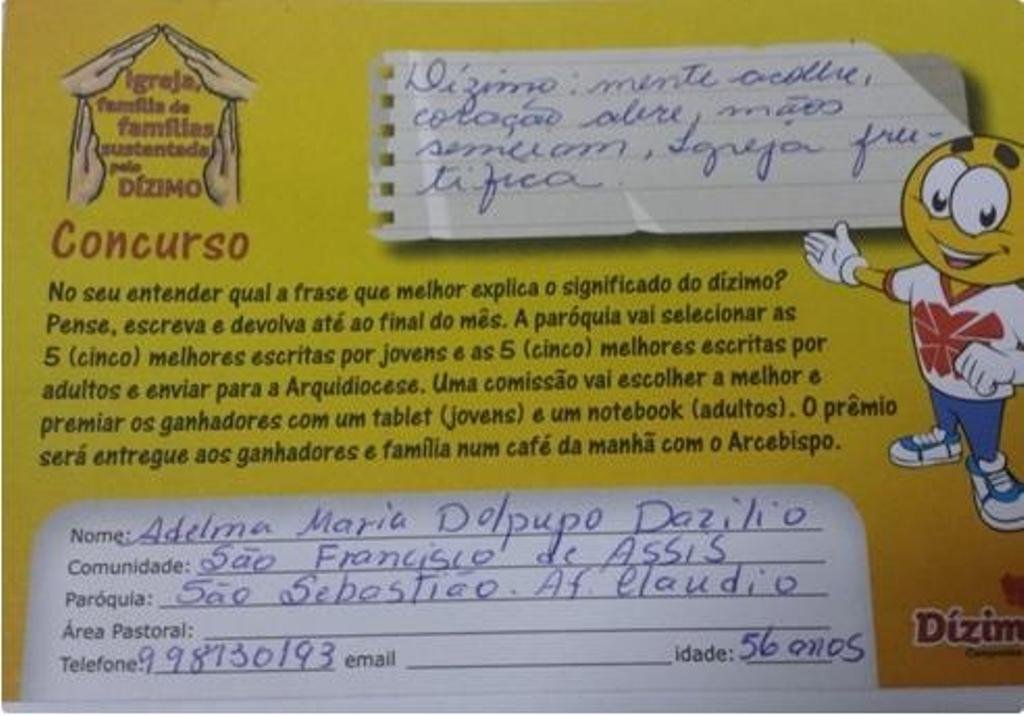 Igreja,
família de
famílias
sustentada
pelo
DÍZIMO
Dízimo: mente acolhe,
coração abre, mãos
semeiam, Igreja fru-
tifica.
Concurso
No seu entender qual a frase que melhor explica o significado do dízimo?
Pense, escreva e devolva até ao final do mês. A paróquia vai selecionar as
5 (cinco) melhores escritas por jovens e as 5 (cinco) melhores escritas por
adultos e enviar para a Arquidiocese. Uma comissão vai escolher a melhor e
premiar os ganhadores com um tablet (jovens) e um notebook (adultos). O prêmio
será entregue aos ganhadores e família num café da manhã com o Arcebispo.
Nome: Adelma Maria Delpupo Dazilio
Comunidade: São Francisco de ASSIS
Paróquia: São Sebastião. Af. Claudio
Área Pastoral:
Telefone: 998730193 email idade: 56 anos
Dízim